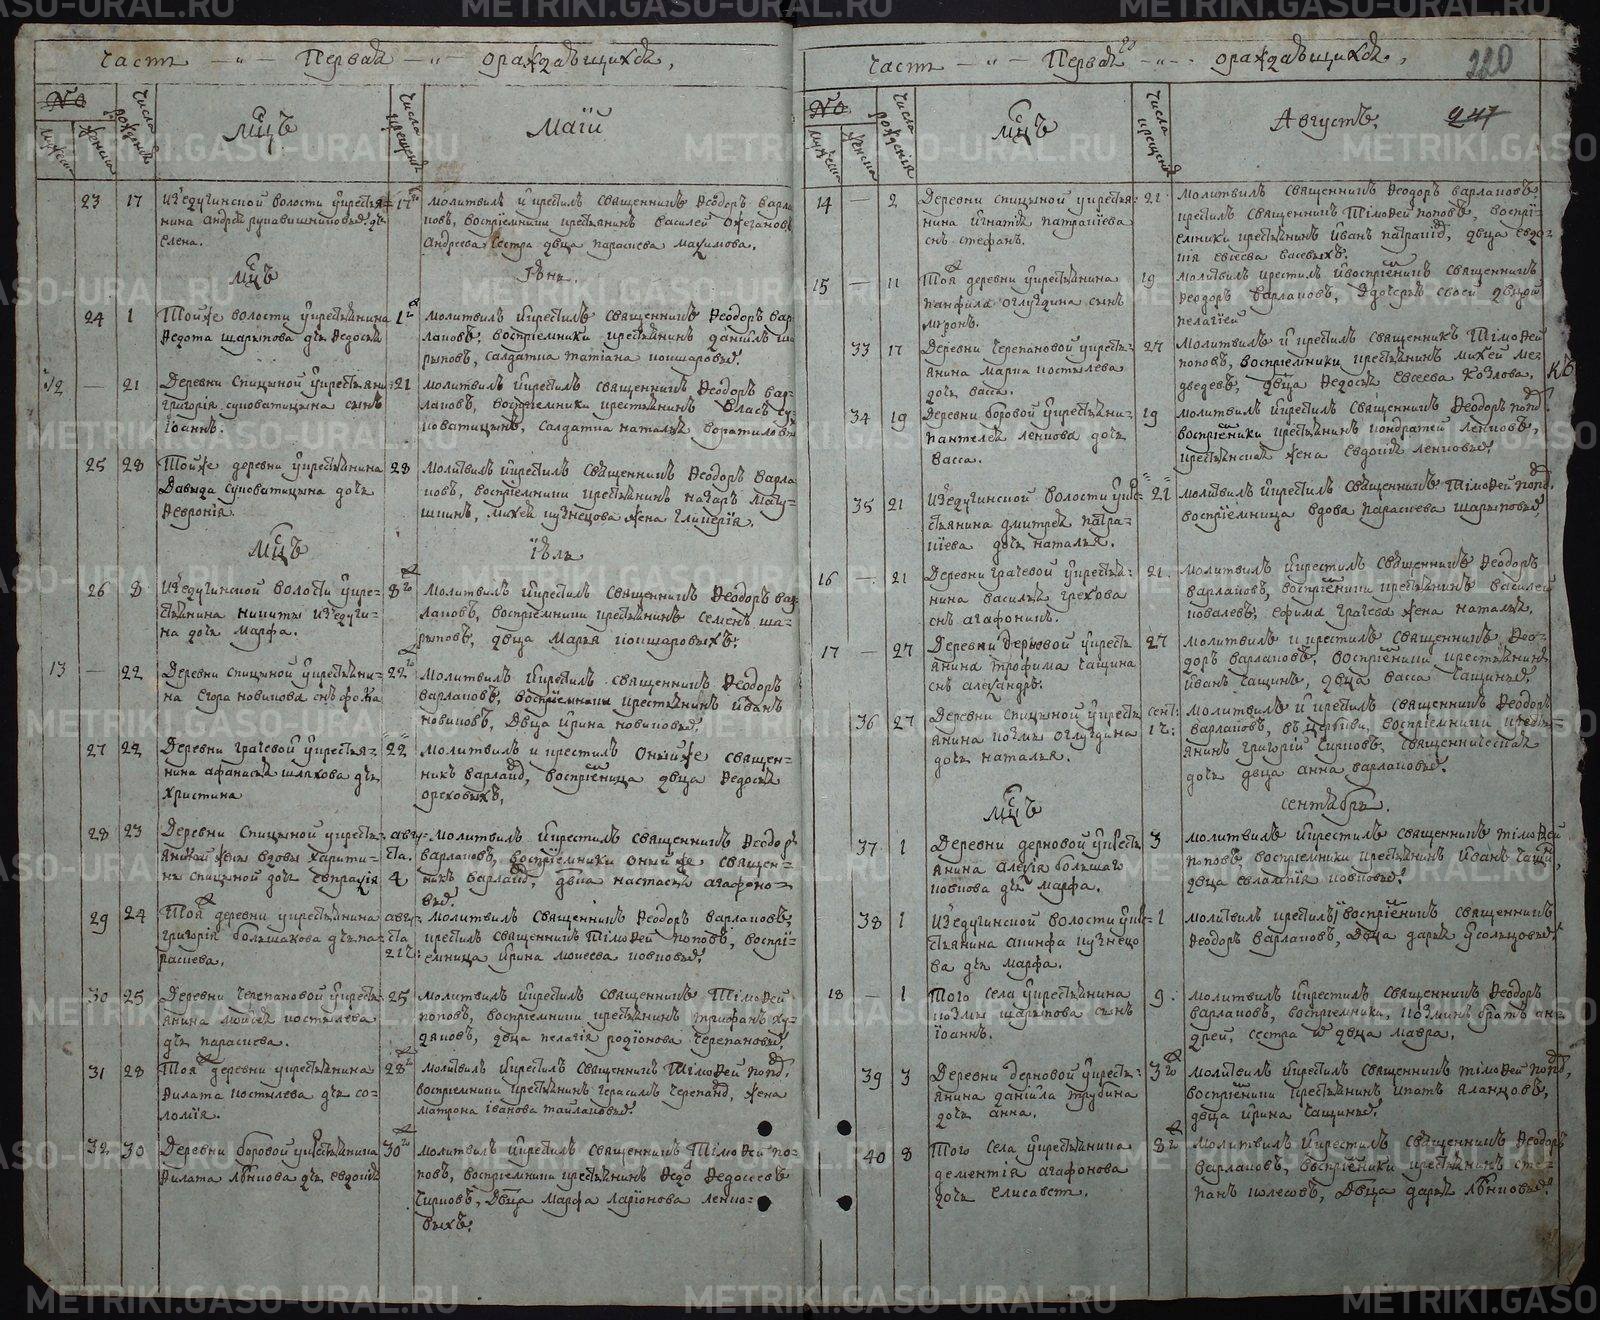 Часть — „ — Первая — „ — ораждающихся,
№
мужеска
женска
числа рожденiя
Мцъ
числа крещенiя
Маiй
23 17 Изъедугинской волости у крестья-
нина Андрея рукавишникова дчь
елена.
17
молитвилъ и крестилъ священникъ Ѳеодоръ варла-
ковъ, воспрiемники крестьянинъ василей Ожегановъ
Андреева сестра двца параскева максимова.
Мцъ
Iюнь.
24 1 Тойже волости у крестьянина
Ѳедота шарыпова дчь Ѳедосья
1
молитвилъ и крестилъ священникъ Ѳеодоръ вар-
лаковъ, воспрiемники крестьянинъ данiилъ ша-
рыповъ, солдатка татiана кошарова.
12 — 21 Деревни Спицыной у крестьянина
григорiя суковатицына сынъ
Iоаннъ.
21
молитвилъ и крестилъ священникъ Ѳеодоръ вар-
лаковъ, воспрiемники крестьянинъ Власъ су-
коватицынъ, солдатка наталья
25 28 Тойже деревни у крестьянина
Давыда суковатицына дочь
Ѳевронiя.
28
молитвилъ и крестилъ священникъ Ѳеодоръ варла-
ковъ, воспрiемники крестьянинъ назаръ
михея кузнецова жена гликерiя.
Мцъ
Iюль
26 8 Изъедугинской волости у кре-
стьянина никиты Изъедуги-
на дочь марфа.
8
молитвилъ и крестилъ священникъ Ѳеодоръ вар-
лаковъ, воспрiемники крестьянинъ семенъ ша-
рыповъ, двца марья кошаровыхъ.
13 — 22 Деревни спицыной у крестьяни-
на егора новикова снъ фока
22
молитвилъ и крестилъ священникъ Ѳеодоръ
варлаковъ, воспрiемники крестьянинъ иванъ
новиковъ, двца ирина новикова.
27 22 Деревни грачевой у крестья-
нина афанасья шляхова дчь
Христина
22
молитвилъ и крестилъ Онъиже священ-
никъ варлаковъ, воспрiемница двца Ѳедосья
ореховыхъ,
28 23 Деревни Спицыной у крестья-
янской жены вдовы харити-
ны спицыной дочь евпраxiя
авгу-
ста.
4
молитвилъ и крестилъ священникъ Ѳеодоръ
варлаковъ, воспрiемники онъиже священ-
никъ варлаковъ, двца настасья агафоно-
ва.
29 24 Той деревни у крестьянина
григорiя большакова дчь па-
раскева.
авгу-
ста
21
молитвилъ священникъ Ѳеодоръ варлаковъ,
крестилъ священникъ Тiмоѳей поповъ, воспрi-
емница ирина моисеева попова.
30 25 Деревни Черепановой у кресть-
янина моисея костылева
дчь параскева.
25
молитвилъ и крестилъ священникъ Тiмоѳей
поповъ, воспрiемники крестьянинъ трифанъ ху-
дяковъ, двца пелагiя родiонова черепанова.
31 28 Той деревни у крестьянина
Филата костылева дчь со-
ломiя.
28
молитвилъ и крестилъ священникъ Тiмоѳей попов.
воспрiемники крестьянинъ герасимъ черепанов, жена
матрона iванова
32 30 Деревни боровой у крестьянина
Филата дчь евдокiя
30
молитвилъ и крестилъ священникъ Тiмоѳей по-
повъ, воспрiемники крестьянинъ Ѳедосеевъ
Чирковъ, двца марфа ларiонова ленко-
выхъ.
Часть — „ — Первая — „ — ораждающихся,
220
№
мужеска
женска
числа рожденiя
Мцъ
числа крещенiя
Августъ.
247
14 — 2 Деревни спицыной у крестья-
нина игнатья патракiева
снъ стефанъ.
21
молитвилъ священникъ Ѳеодоръ варлаковъ
крестилъ священникъ Тiмоѳей поповъ, воспрi-
емники крестьянинъ иванъ патракiев, двца евдо-
кiя евсеева
15 — 11 Той деревни у крестьянина
панфила оглуздина сынъ
миронъ.
19
молитвилъ крестилъ и воспрiемникъ священникъ
Ѳеодоръ варлаковъ, з дочерью своей двцой
пелагiей
33 17 Деревни Черепановой у кресть-
янина марка костылева
дочь васса.
27
молитвилъ и крестилъ священникъ Тiмоѳей
поповъ, воспрiемники крестьянинъ михей ме-
дведевъ, двца Ѳедосья евсеева козлова.
34 19 Деревни боровой у крестьяни-
пантелея ленкова дочь
васса.
19
молитвилъ и крестилъ священникъ Ѳеодоръ попов.
воспрiемники крестьянинъ кондратей ленковъ,
крестьянская жена евдокiя ленкова.
35 21 Изъедугинской волости у кре-
стьянина дмитрея патра-
кiева дочь наталья.
21
молитвилъ и крестилъ священникъ Тiмоѳей попов.
воспрiемница вдова параскева шарыпова.
16 — 21 Деревни грачевой у крестья-
нина василья грехова
снъ агафоникъ.
21.
молитвилъ и крестилъ священникъ Ѳеодоръ
варлаковъ, воспрiемники крестьянинъ василей
ковалевъ, ефима грачева жена наталья.
17 — 27 Деревни дерновой у кресть-
янина трофима чащина
снъ александръ.
27
молитвилъ и крестилъ священникъ Ѳео-
доръ варлаковъ, воспрiемники крестьянинъ
иванъ чащинъ, двца васса чащина.
36 27 Деревни спицыной у кресть-
янина козмы оглуздина
дочь наталья.
сент:
1
молитвилъ и крестилъ священникъ Ѳеодоръ
варлаковъ, въ церкви, воспрiемники кресть-
янинъ григорiй священническая
дочь двца анна варлакова.
Мцъ
сентябрь.
37 1 Деревни дерновой у кресть-
янина алексiя большаго
попкова дчь марфа.
3
молитвилъ и крестилъ священникъ тiмоѳей
поповъ воспрiемники крестьянинъ иванъ чащин,
двца евлампiя попкова.
38 1 Изъедугинской волости у кре-
стьянина акинфа кузнецо-
ва дчь марфа.
1
молитвилъ крестилъ и воспрiемникъ священникъ
Ѳеодоръ варлаковъ, двца дарья усольцова.
18 — 1 Того села у крестьянина
козмы шарыпова сынъ
iоаннъ.
9.
молитвилъ и крестилъ священникъ Ѳеодоръ
варлаковъ, воспрiемники, козминъ братъ ан-
дрей, сестра двца мавра.
39 3 Деревни дерновой у кресть-
янина данiила трубина
дочь анна.
3
молитвилъ и крестилъ священникъ тiмоѳей попов,
воспрiемники крестьянинъ ипатъ
двца ирина чащина.
40 8 Того села у крестьянина
дементiя агафонова
дочь Елисавет.
8
молитвилъ и крестилъ священникъ Ѳеодоръ
варлаковъ, воспрiемники крестьянинъ сте-
панъ двца дарья
METRIKI.GASO-URAL.RU